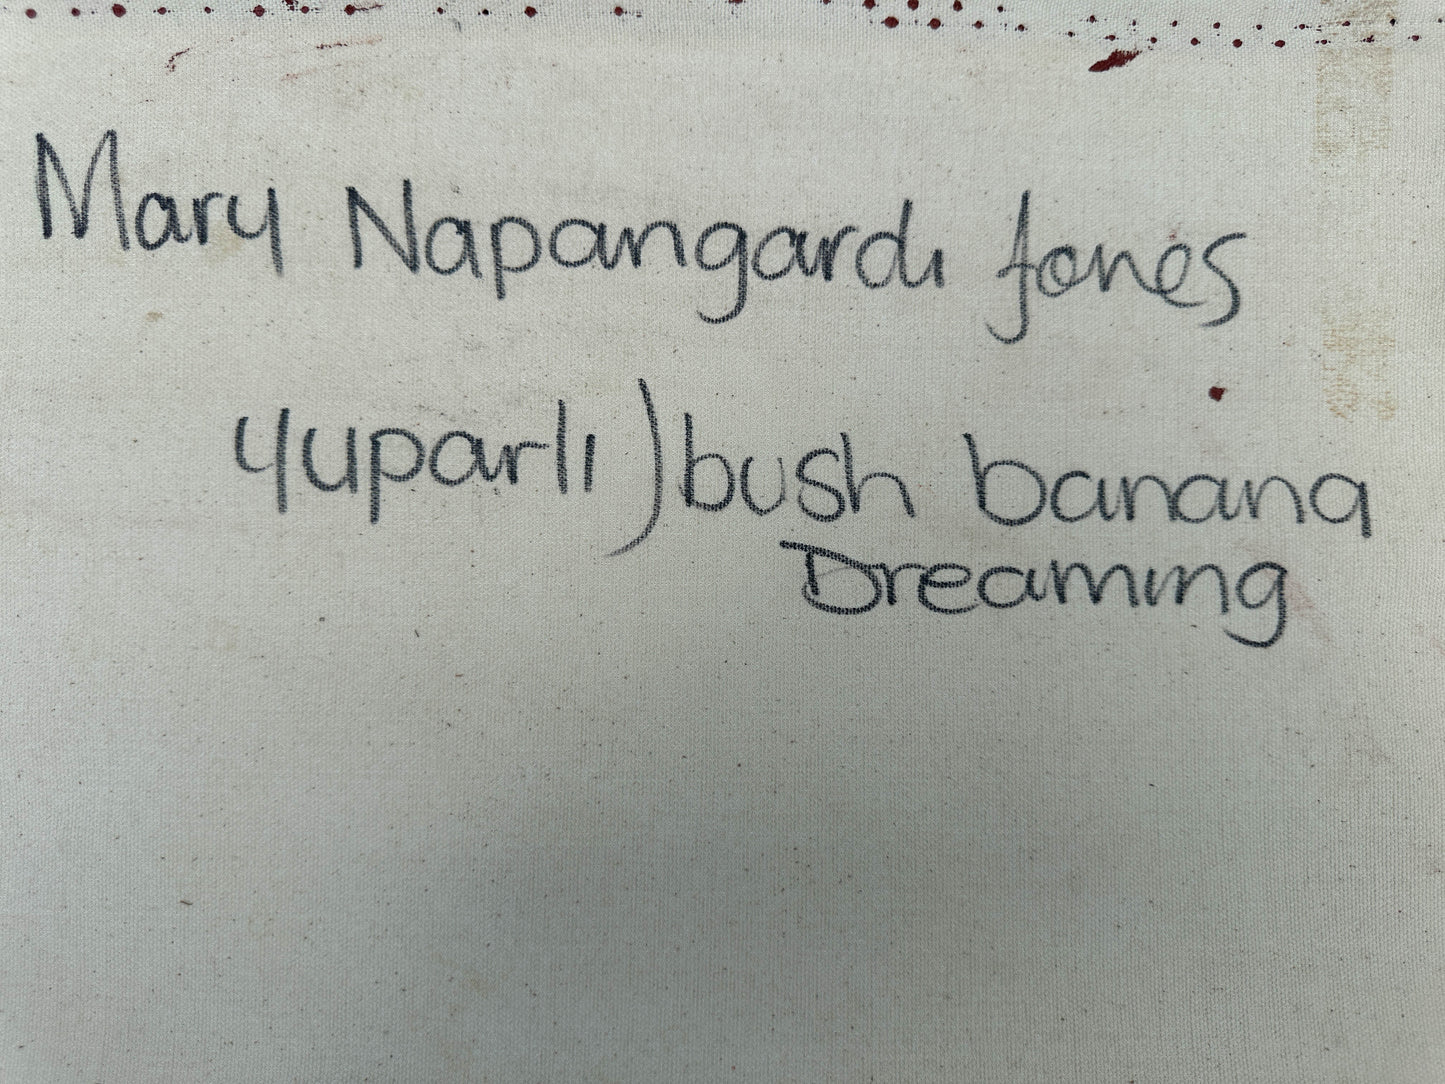 Mary Napangardi Jones
Yuparli) bush banana
Dreaming